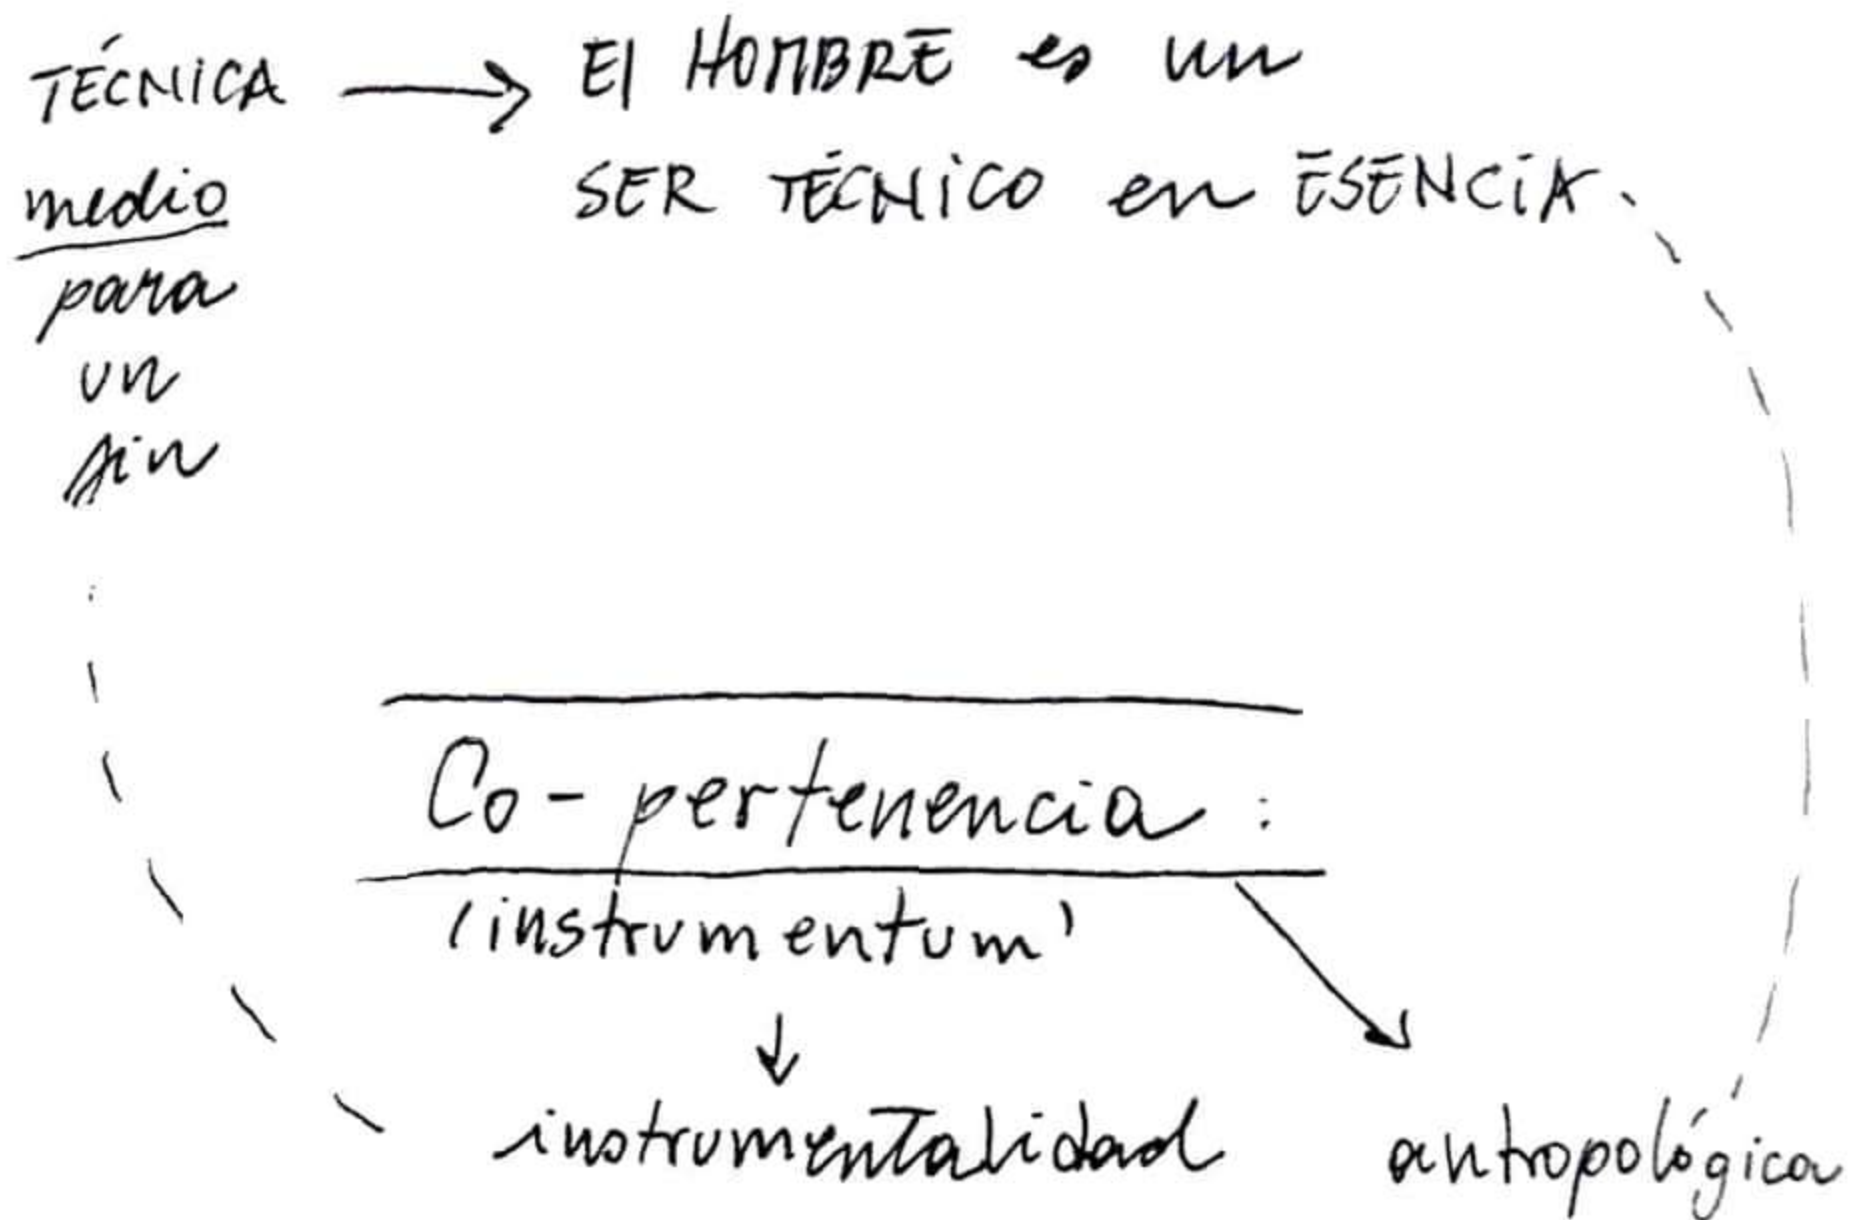 TÉCNICA → El HOMBRE es un
SER TÉCNICO en ESENCIA.
medio
para
un
fin
Co-pertenencia:
'instrumentum'
instrumentalidad
antropológica